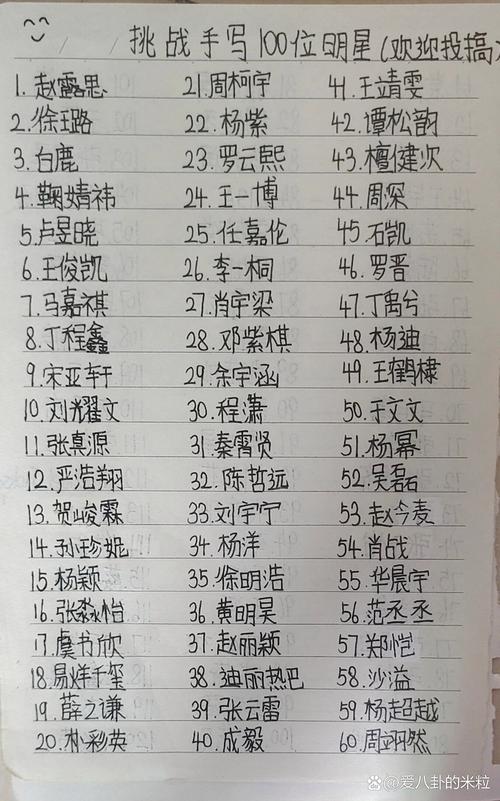 挑战手写100位明星(欢迎投搞
1.赵露思
2.徐璐
3.白鹿
4.鞠婧祎
5.卢昱晓
6.王俊凯
7.马嘉祺
8.丁程鑫
9.宋亚轩
10.刘耀文
11.张真源
12.严浩翔
13.贺峻霖
14.孙珍妮
15.杨颖
16.张淼怡
17.虞书欣
18.易烊千玺
19.薛之谦
20.朴彩英
21.周柯宇
22.杨紫
23.罗云熙
24.王一博
25.任嘉伦
26.李一桐
27.肖宇梁
28.邓紫棋
29.余宇涵
30.程潇
31.秦霄贤
32.陈哲远
33.刘宇宁
34.杨洋
35.徐明浩
36.黄明昊
37.赵丽颖
38.迪丽热巴
39.张云雷
40.成毅
41.王靖雯
42.谭松韵
43.檀健次
44.周深
45.石凯
46.罗晋
47.丁禹兮
48.杨迪
49.王鹤棣
50.于文文
51.杨幂
52.吴磊
53.赵今麦
54.肖战
55.华晨宇
56.范丞丞
57.郑恺
58.沙溢
59.杨超越
60.周翊然
@爱八卦的米粒